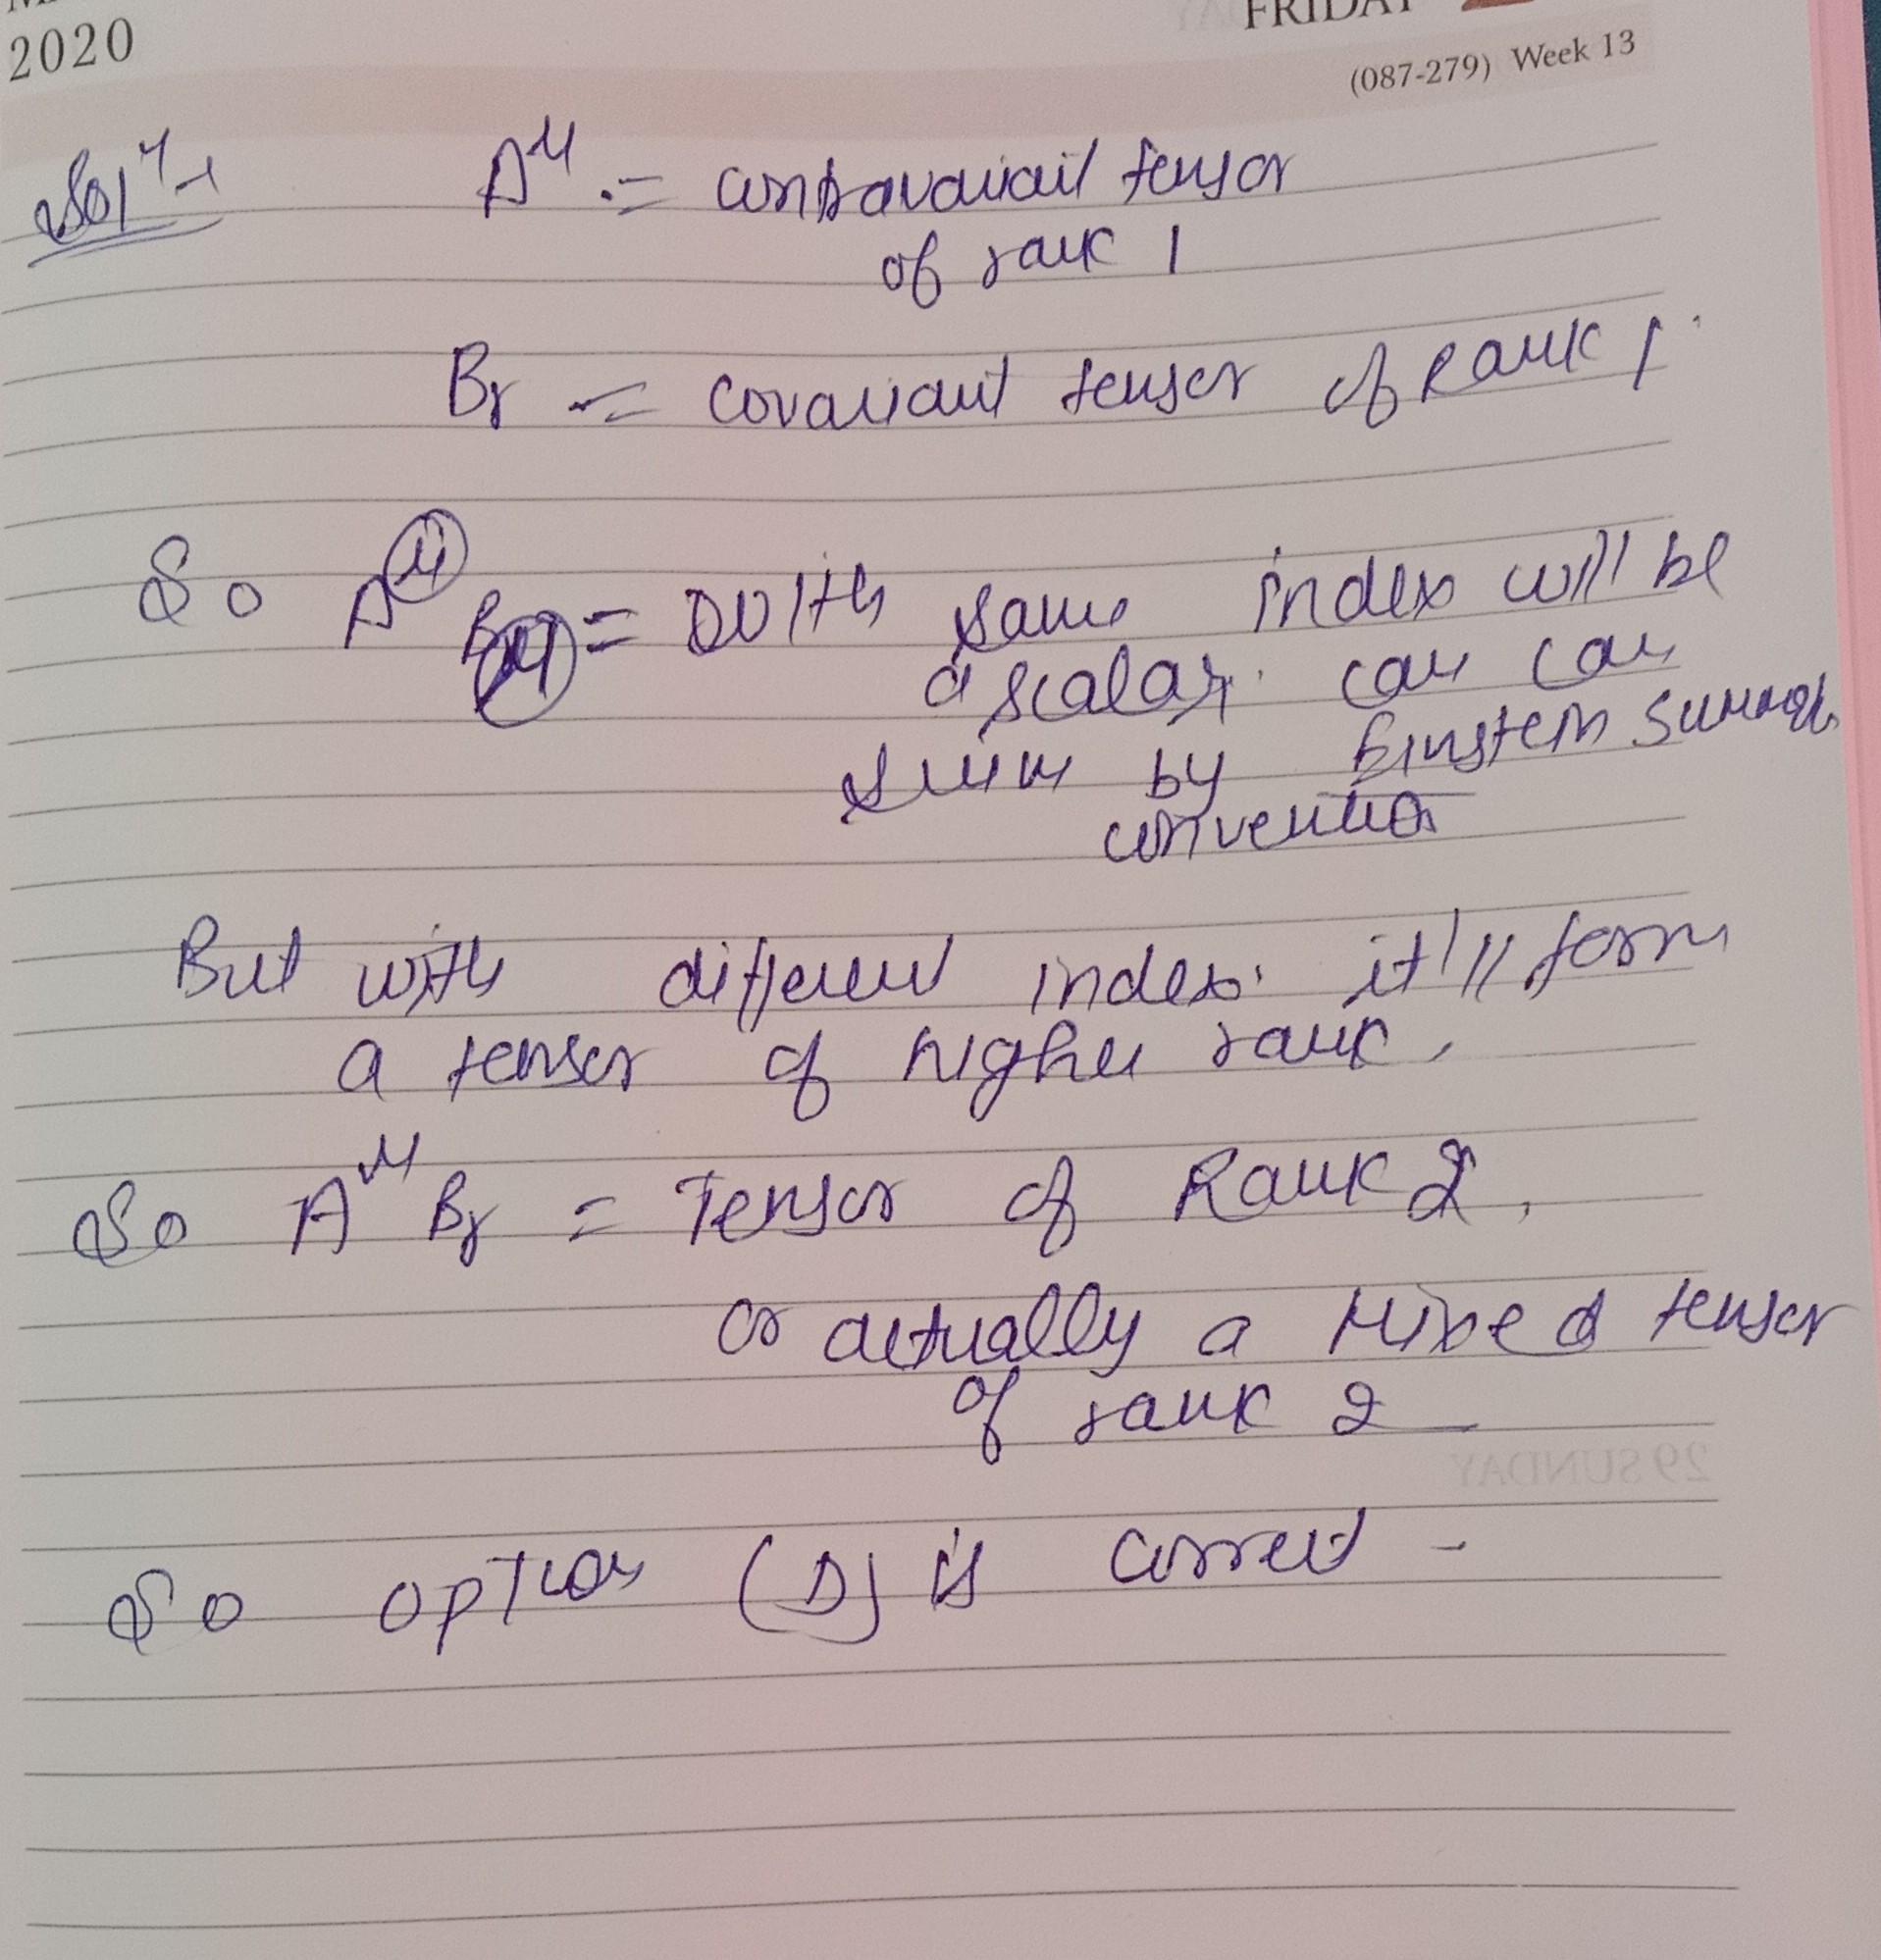 2020
FRIDAY
(087-279) Week 13
Solⁿ
A^μ = contravariant tensor
of rank 1
Bγ = covariant tensor of Rank 1.
So A^μ Bμ = with same index will be
a scalar. can can
sum by Einstein summation
convention
But with different index it'll form
a tensor of higher rank,
So A^μ Bγ = Tensor of Rank 2,
or actually a Mixed tensor
of rank 2
29 SUNDAY
So option (D) is correct -